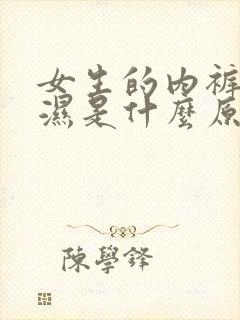 女生的内裤
濕是什麼原
陳學鋒